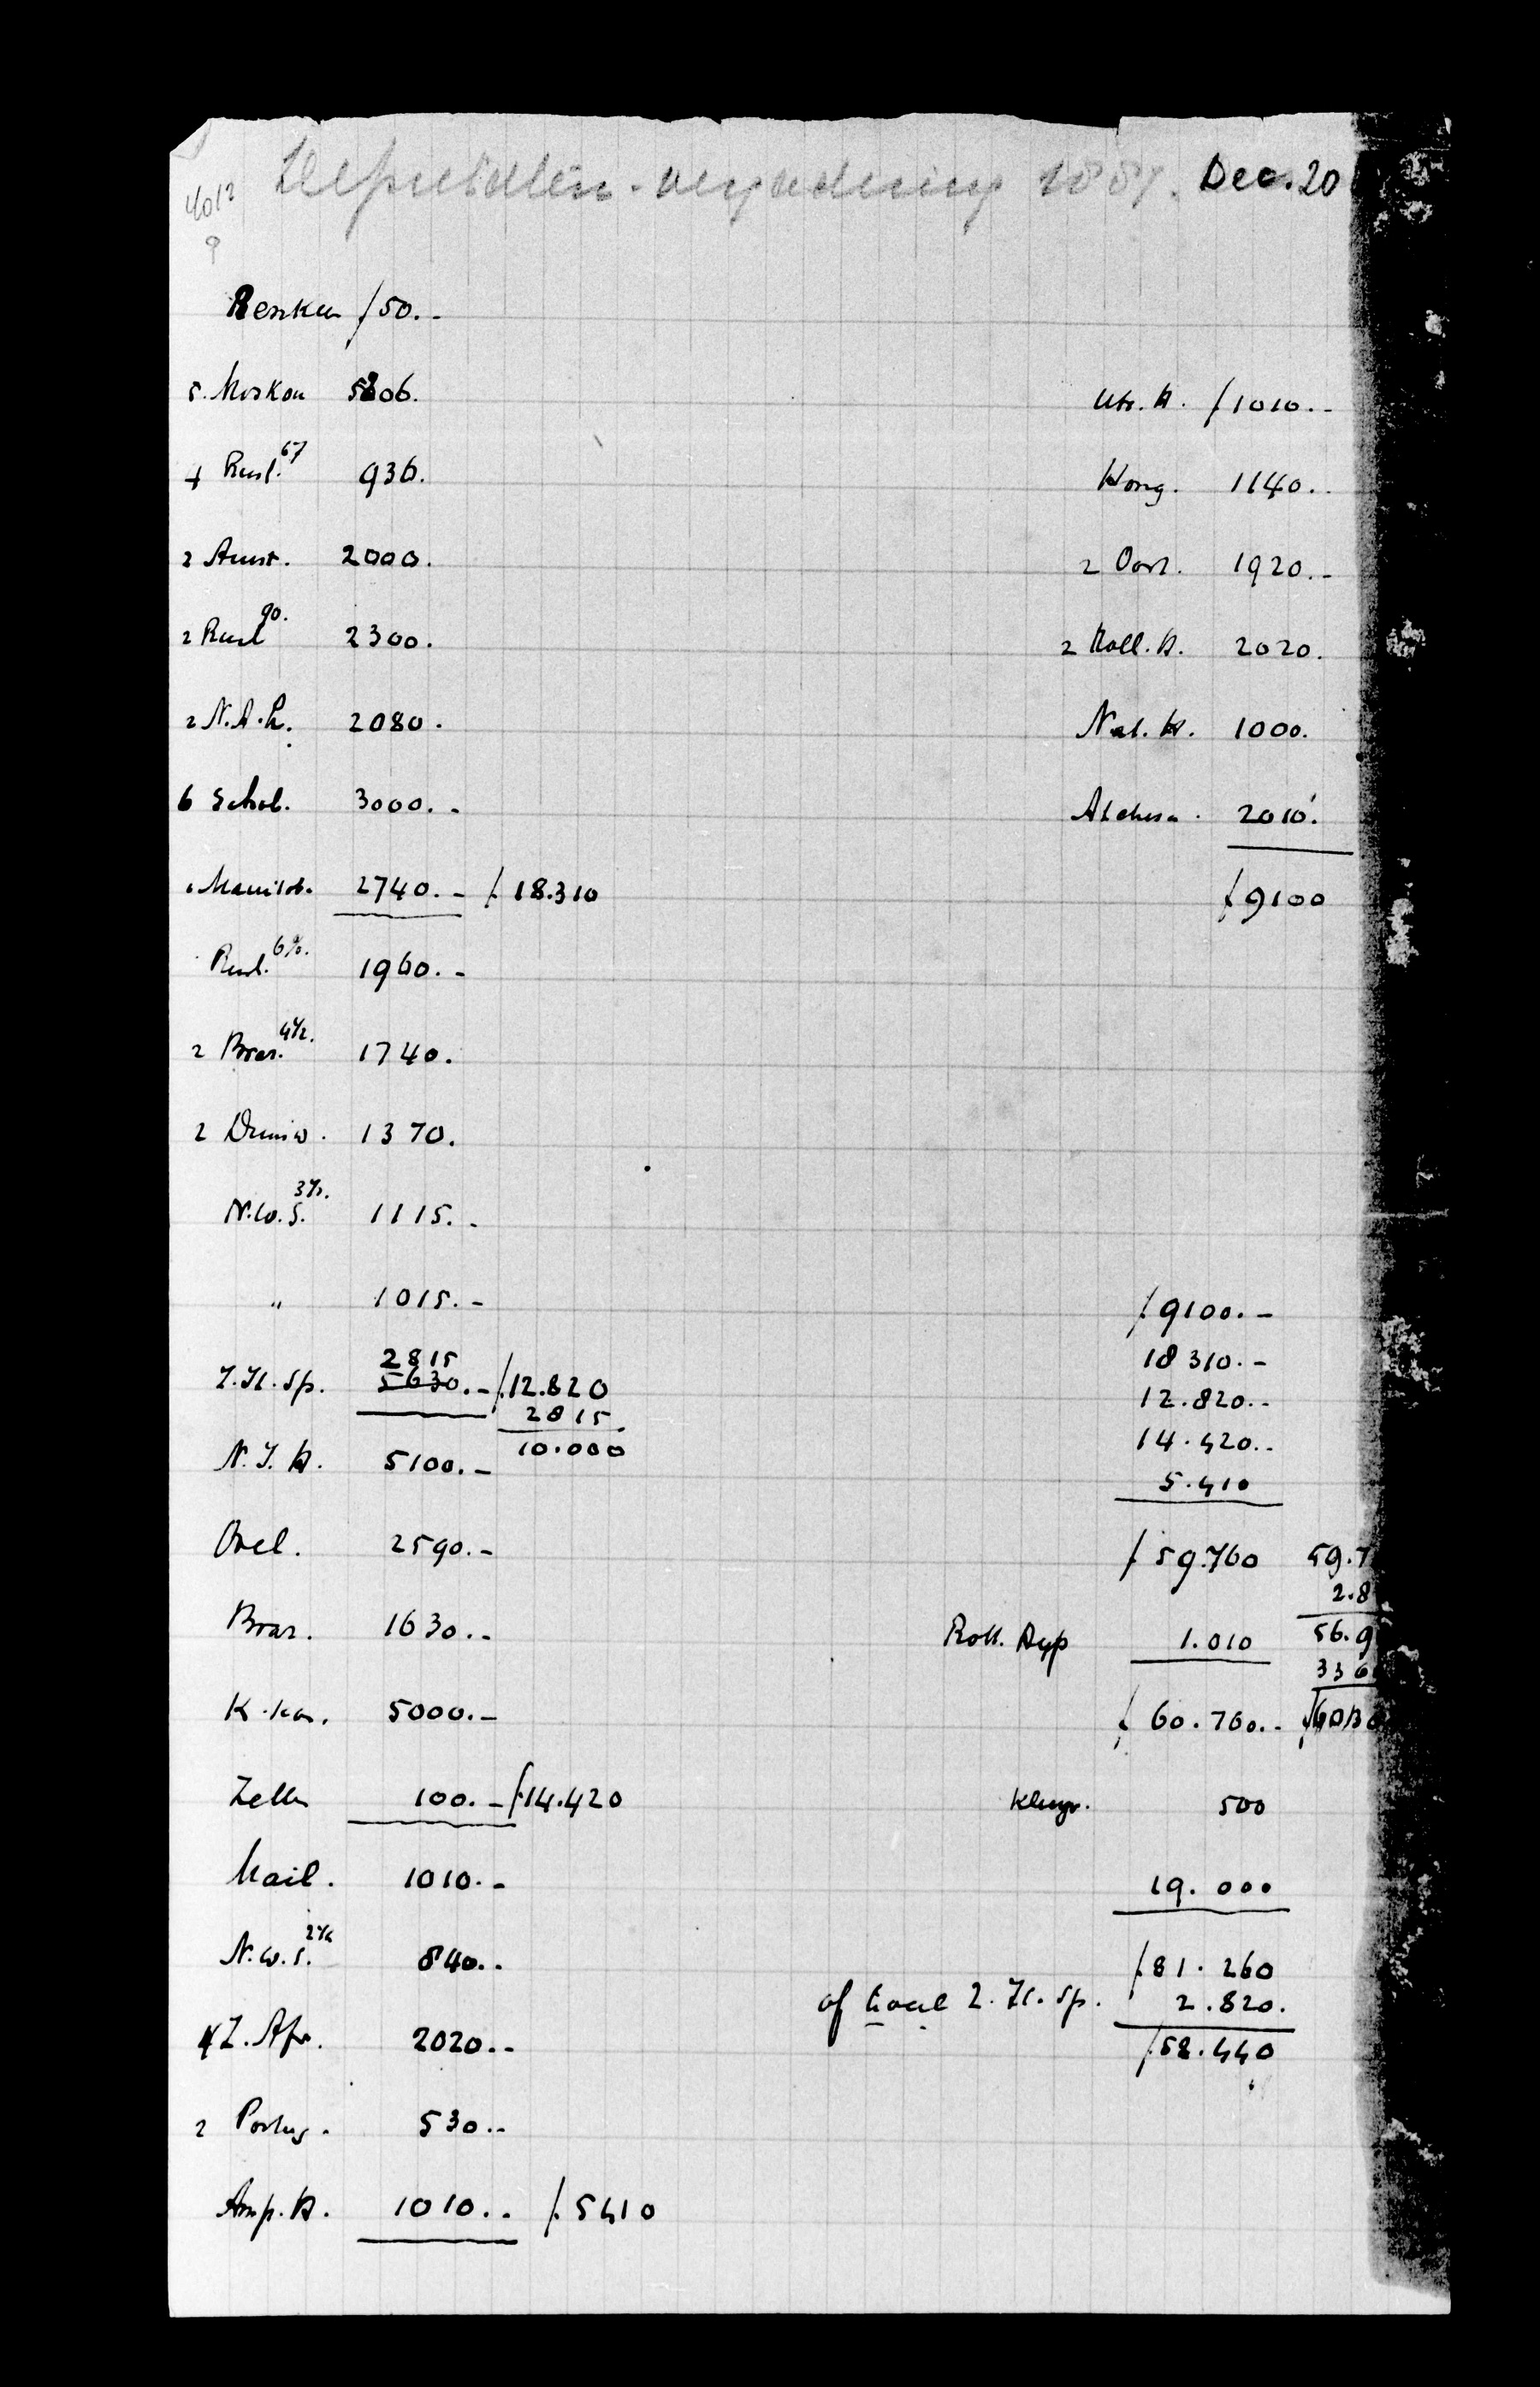 Dec. 20
Renken f 50.-
5. Moskou 5206.
4 Rusl. 67 936.
2 Amst. 2000.
2 Rusl 90. 2300.
2 N.A.L. 2080.
6 Schol. 3000.-
Manitob. 2740.- f 18.310
Rusl. 6%. 1960.-
2 Braz. 4½. 1740.
2 1370.
N.W.S. 3½. 1115.-
" 1015.-
2815
Z.H.Sp. 5630.- f 12.820
2815
10.000
N.Y.H. 5100.-
Orel. 2590.-
Braz. 1630.-
K. ka. 5000.-
100.- f 14.420
Mail. 1010.-
N.W.S. 2½ 840.-
4 Z. Afr. 2020.-
2 Portug. 530.-
Amp. H. 1010.- f 5410
Utr. H. f 1010.-
Hong. 1140.-
2 Oost. 1920.-
2 Holl. H. 2020.
Nat. H. 1000.
Atchison. 2010.
f 9100
f 9100.-
18310.-
12.820.-
14.420.-
5.410
f 59.760 59.7
2.8
Rott. Hyp 1.010 56.9
336
f 60.760.-
500
19.000
f 81.260
of Z.H.Sp. 2.820.
f 58.440